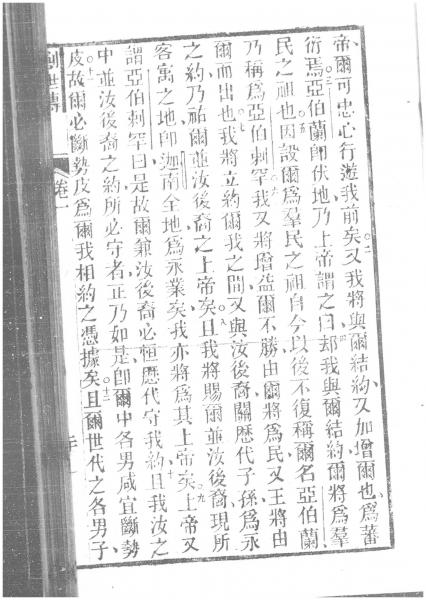 帝、爾可忠心行遊我前矣、又我將與爾結約、又加增爾也、爲蕃
衍焉、亞伯蘭卽伏地、乃上帝謂之曰、却我與爾結約、爾將爲羣
民之祖也、因設爾爲羣民之祖、自今以後不復稱爾名亞伯蘭、
乃稱爲亞伯刺罕、我又將增益爾不勝、由爾將爲民、又王將由
爾而出也、我將立約爾我之間、又與汝後裔、關歷代子孫、爲永
之約、乃祐爾並汝後裔之上帝矣、且我將賜爾並汝後裔、現所
客寓之地、卽迦南全地、爲永業矣、我亦將爲其上帝矣、上帝又
謂亞伯刺罕曰、是故爾兼汝後裔、必恒歷代守我約、且我汝之
中並汝後裔之約、所必守者正乃如是、卽爾中各男咸宜斷勢
皮、故爾必斷勢皮、爲爾我相約之憑據矣、且爾世代之各男子、
創世傳 卷一